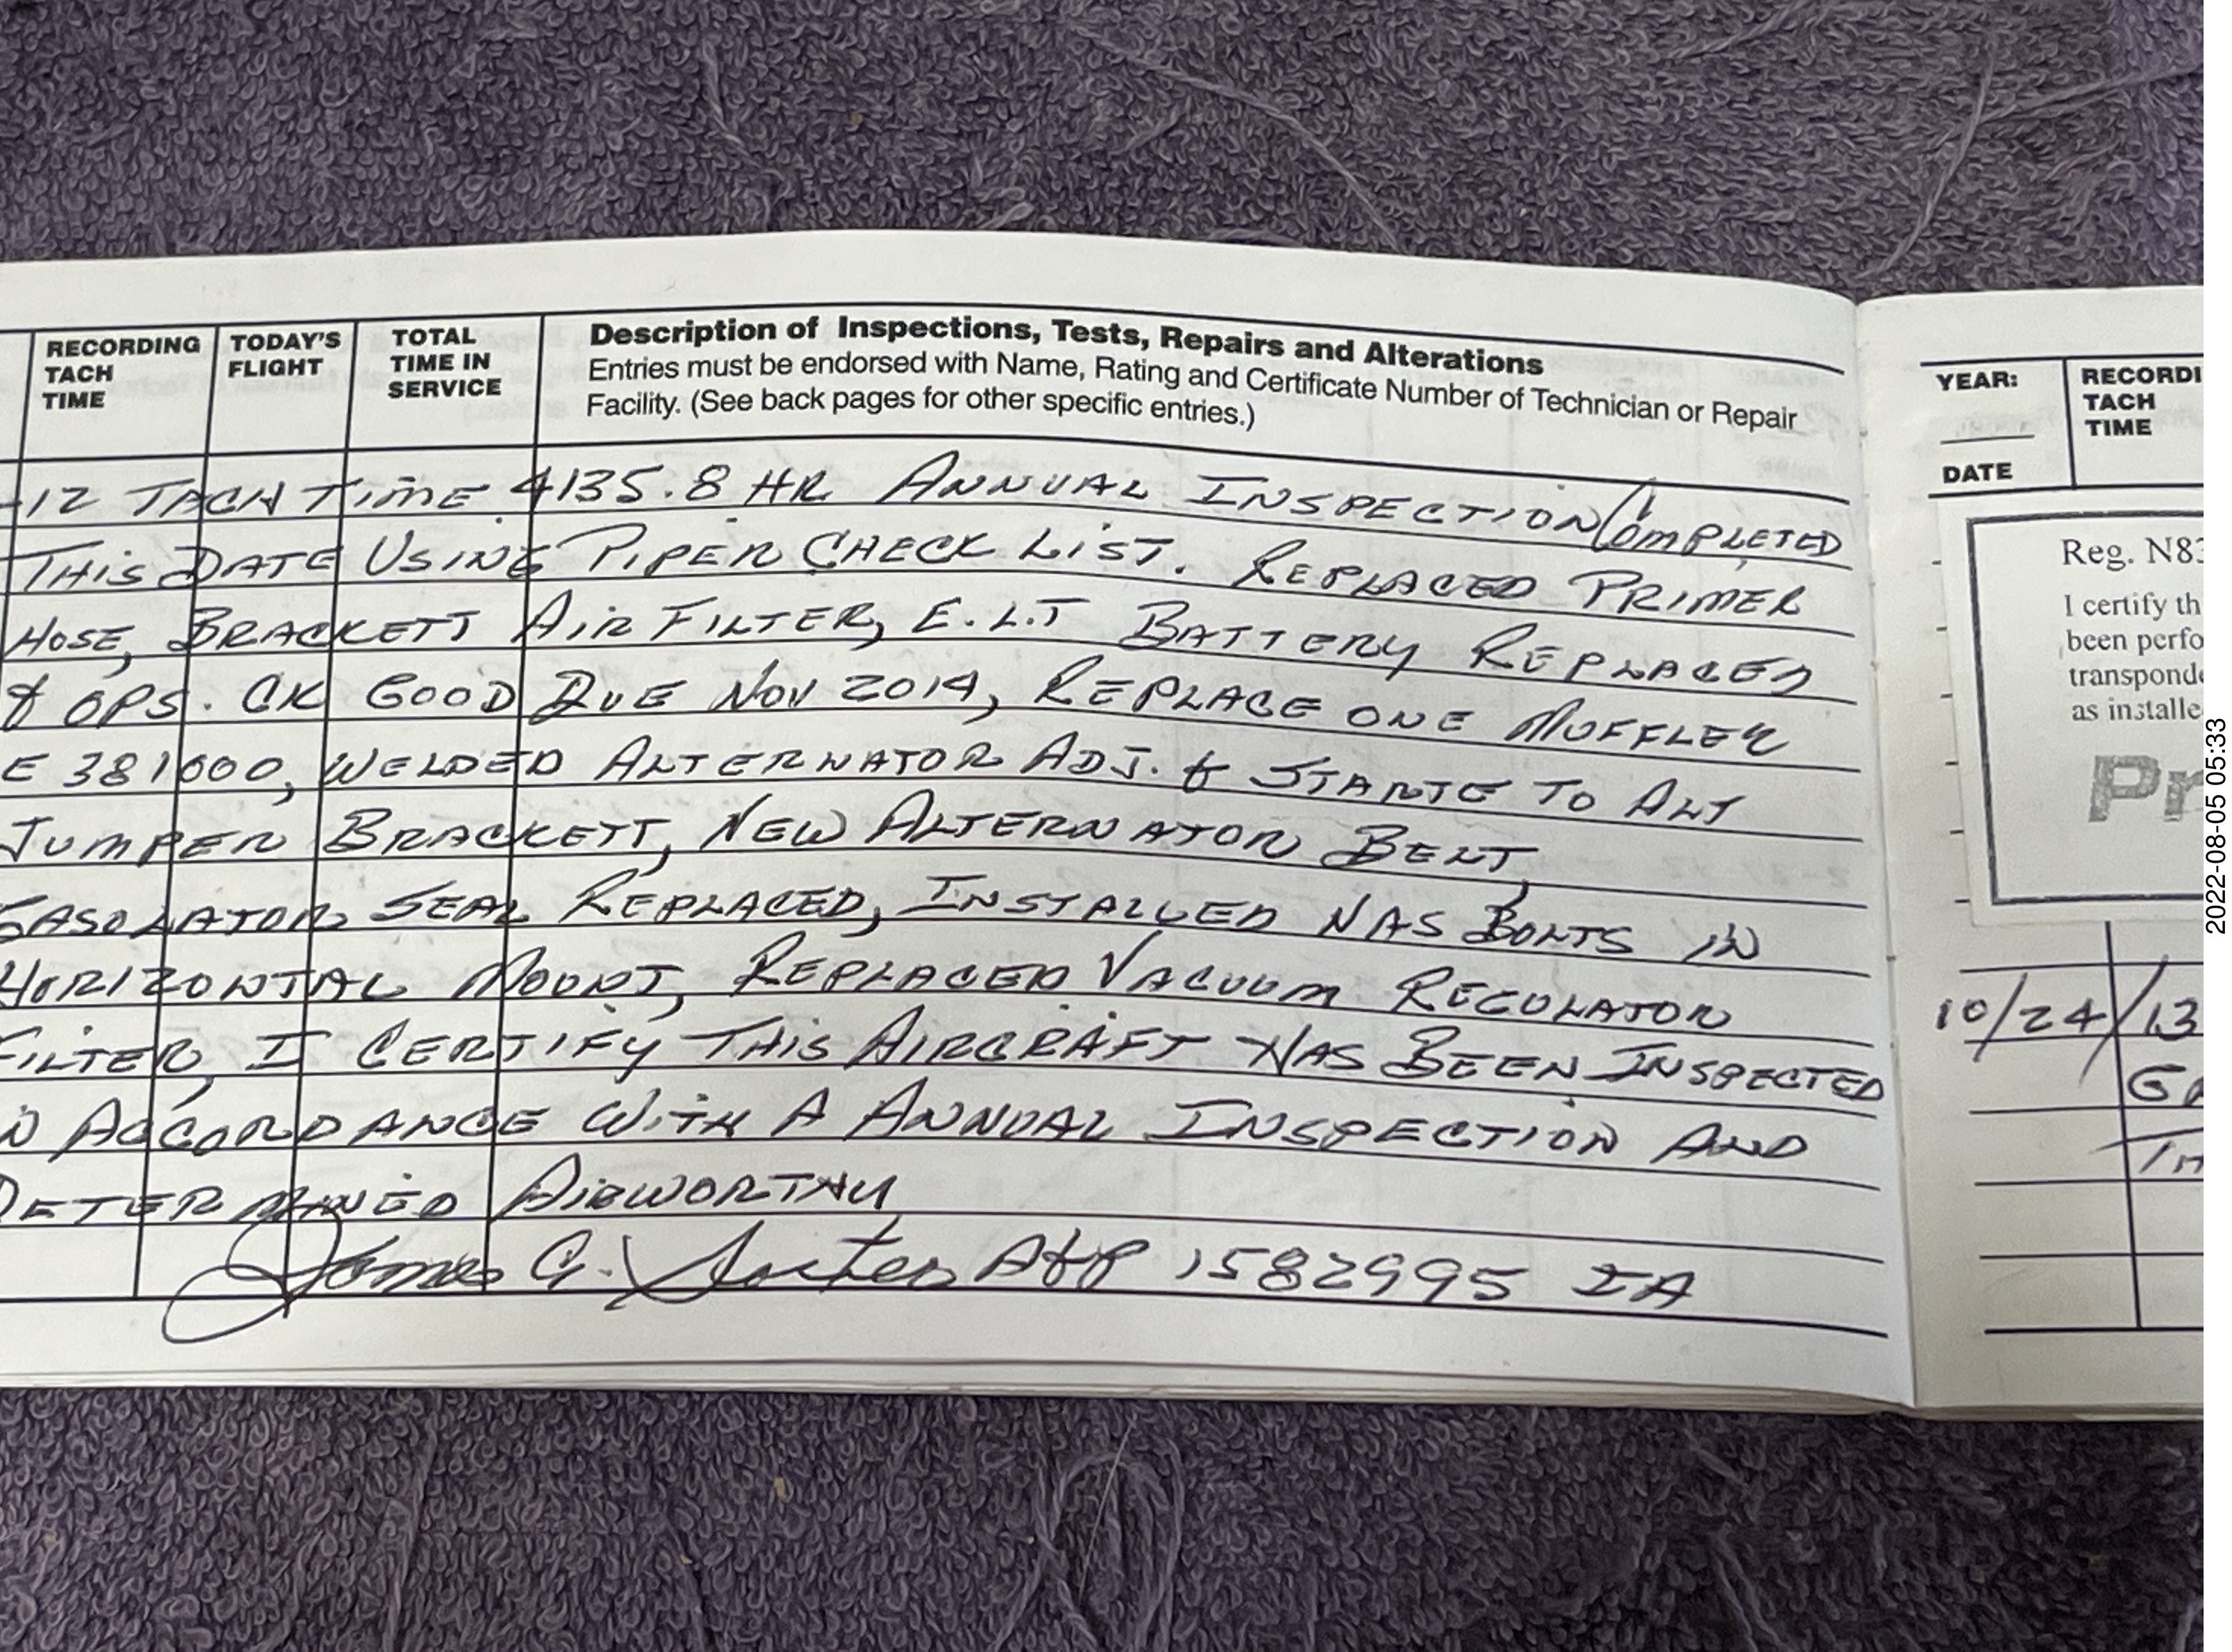 RECORDING TACH TIME
TODAY'S FLIGHT
TOTAL TIME IN SERVICE
Description of Inspections, Tests, Repairs and Alterations
Entries must be endorsed with Name, Rating and Certificate Number of Technician or Repair
Facility. (See back pages for other specific entries.)
-12 TACH TIME 4135.8 HR ANNUAL INSPECTION COMPLETED
THIS DATE USING PIPER CHECK LIST. REPLACED PRIMER
HOSE, BRACKETT AIR FILTER, E.L.T BATTERY REPLACED
& OPS. CK GOOD DUE NOV 2014, REPLACE ONE MUFFLER
E 381000, WELDED ALTERNATOR ADJ. & STARTE TO ALT
JUMPER BRACKETT, NEW ALTERNATOR BELT,
GASOLATOR SEAL REPLACED, INSTALLED NAS BOLTS IN
HORIZONTAL MOUNT, REPLACED VACUUM REGULATOR
FILTER, I CERTIFY THIS AIRCRAFT HAS BEEN INSPECTED
N ACCORDANCE WITH A ANNUAL INSPECTION AND
DETERMINED AIRWORTHY
James G. A&P 1582995 IA
YEAR:
DATE
RECORDI
TACH
TIME
Reg. N83
I certify th
been perfo
transponde
as installe
Pr
10/24/13
GA
TH
2022-08-05 05:33